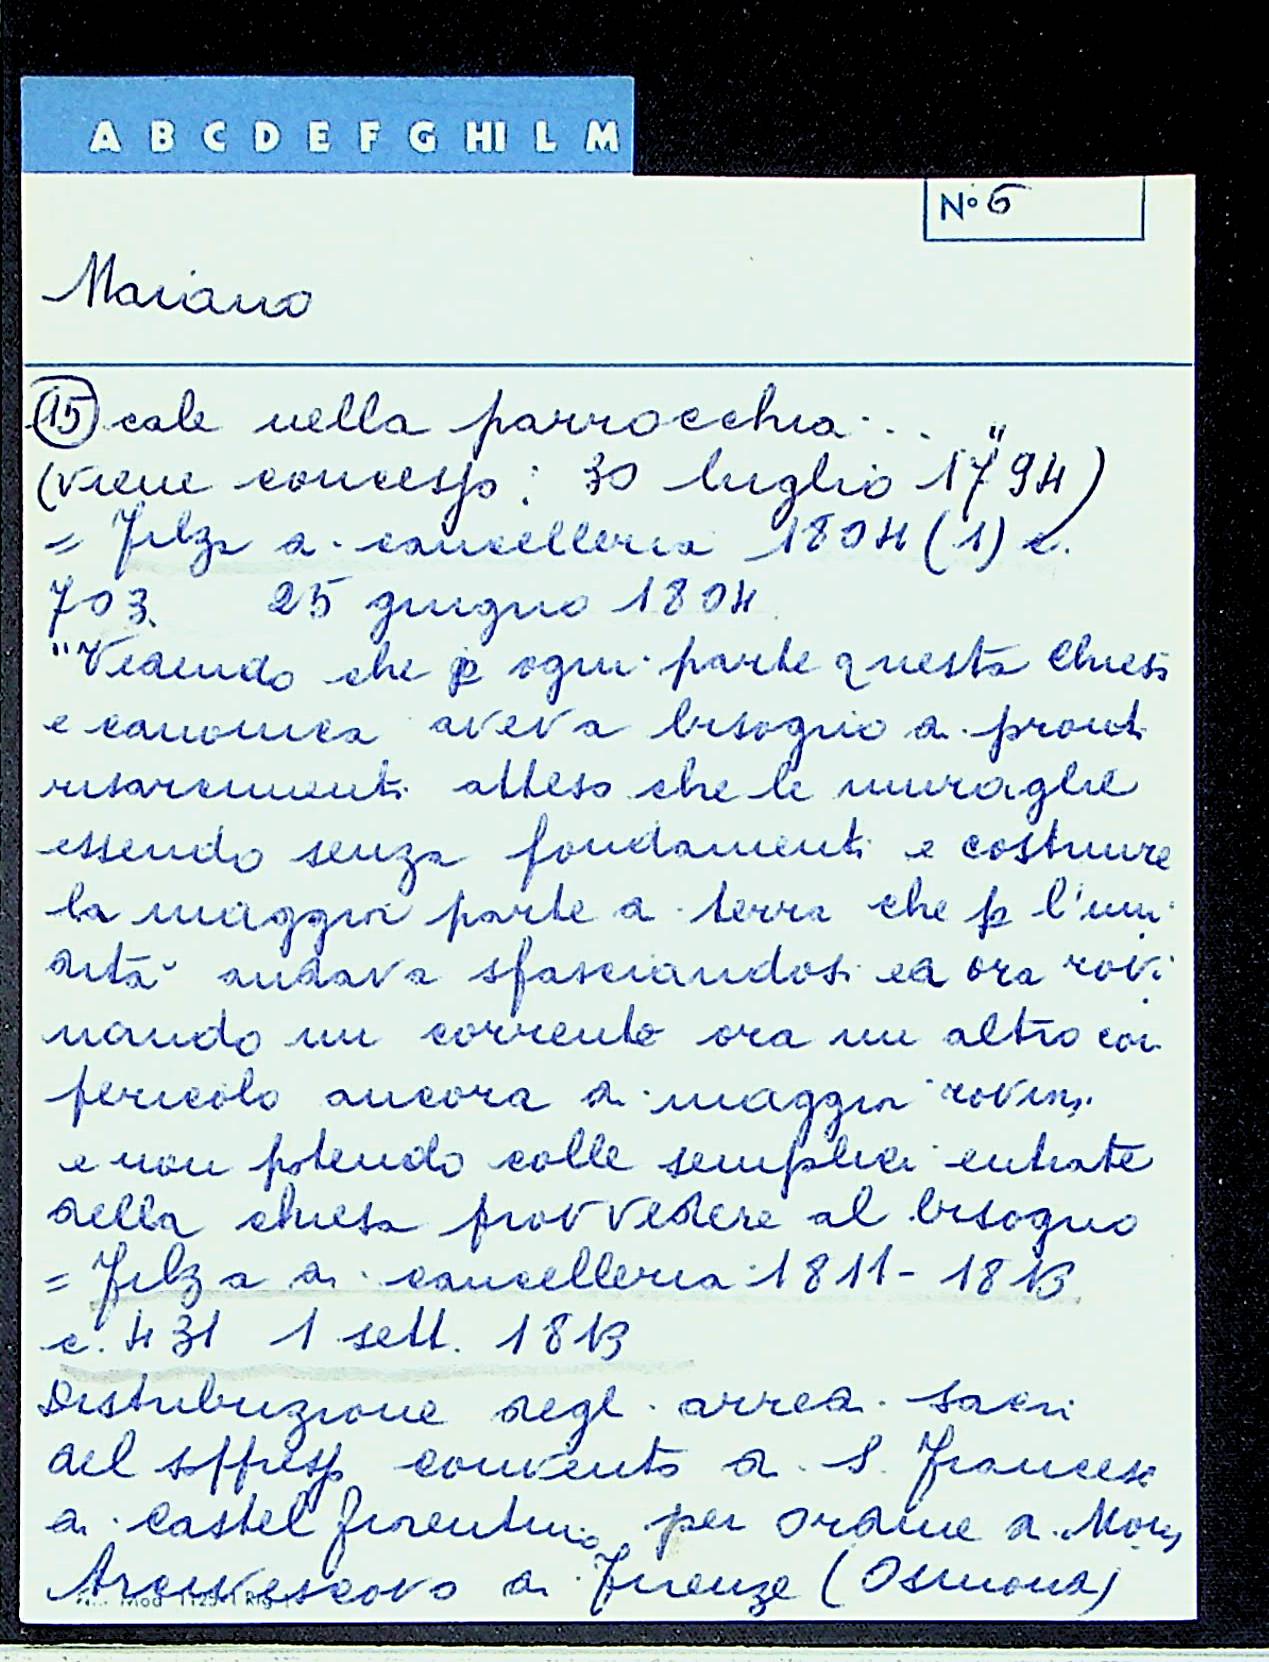 A B C D E F G HI L M
N° 6
Mariano
15 cale nella parrocchia... "
(viene concesso: 30 luglio 1794)
= Filza di cancelleria 1804 (1) c.
703. 25 giugno 1804
"Vedendo che p ogni parte questa chiesa
e canonica aveva bisogno di pronti
risarcimenti atteso che le muraglie
essendo senza fondamenti e costruire
la maggior parte a terra che p l'umi
dità andava sfasciandosi ed ora rovi
nando un corrente ora un altro con
pericolo ancora di maggior rovina
e non potendo colle semplici entrate
della chiesa provvedere al bisogno
= Filza di cancelleria 1811-1813
c. 431 1 sett. 1813
Distribuzione degli arredi sacri
del soppresso convento di S. Francesco
di Castel fiorentino per ordine di Mons
Arcivescovo di Firenze (Osmond)